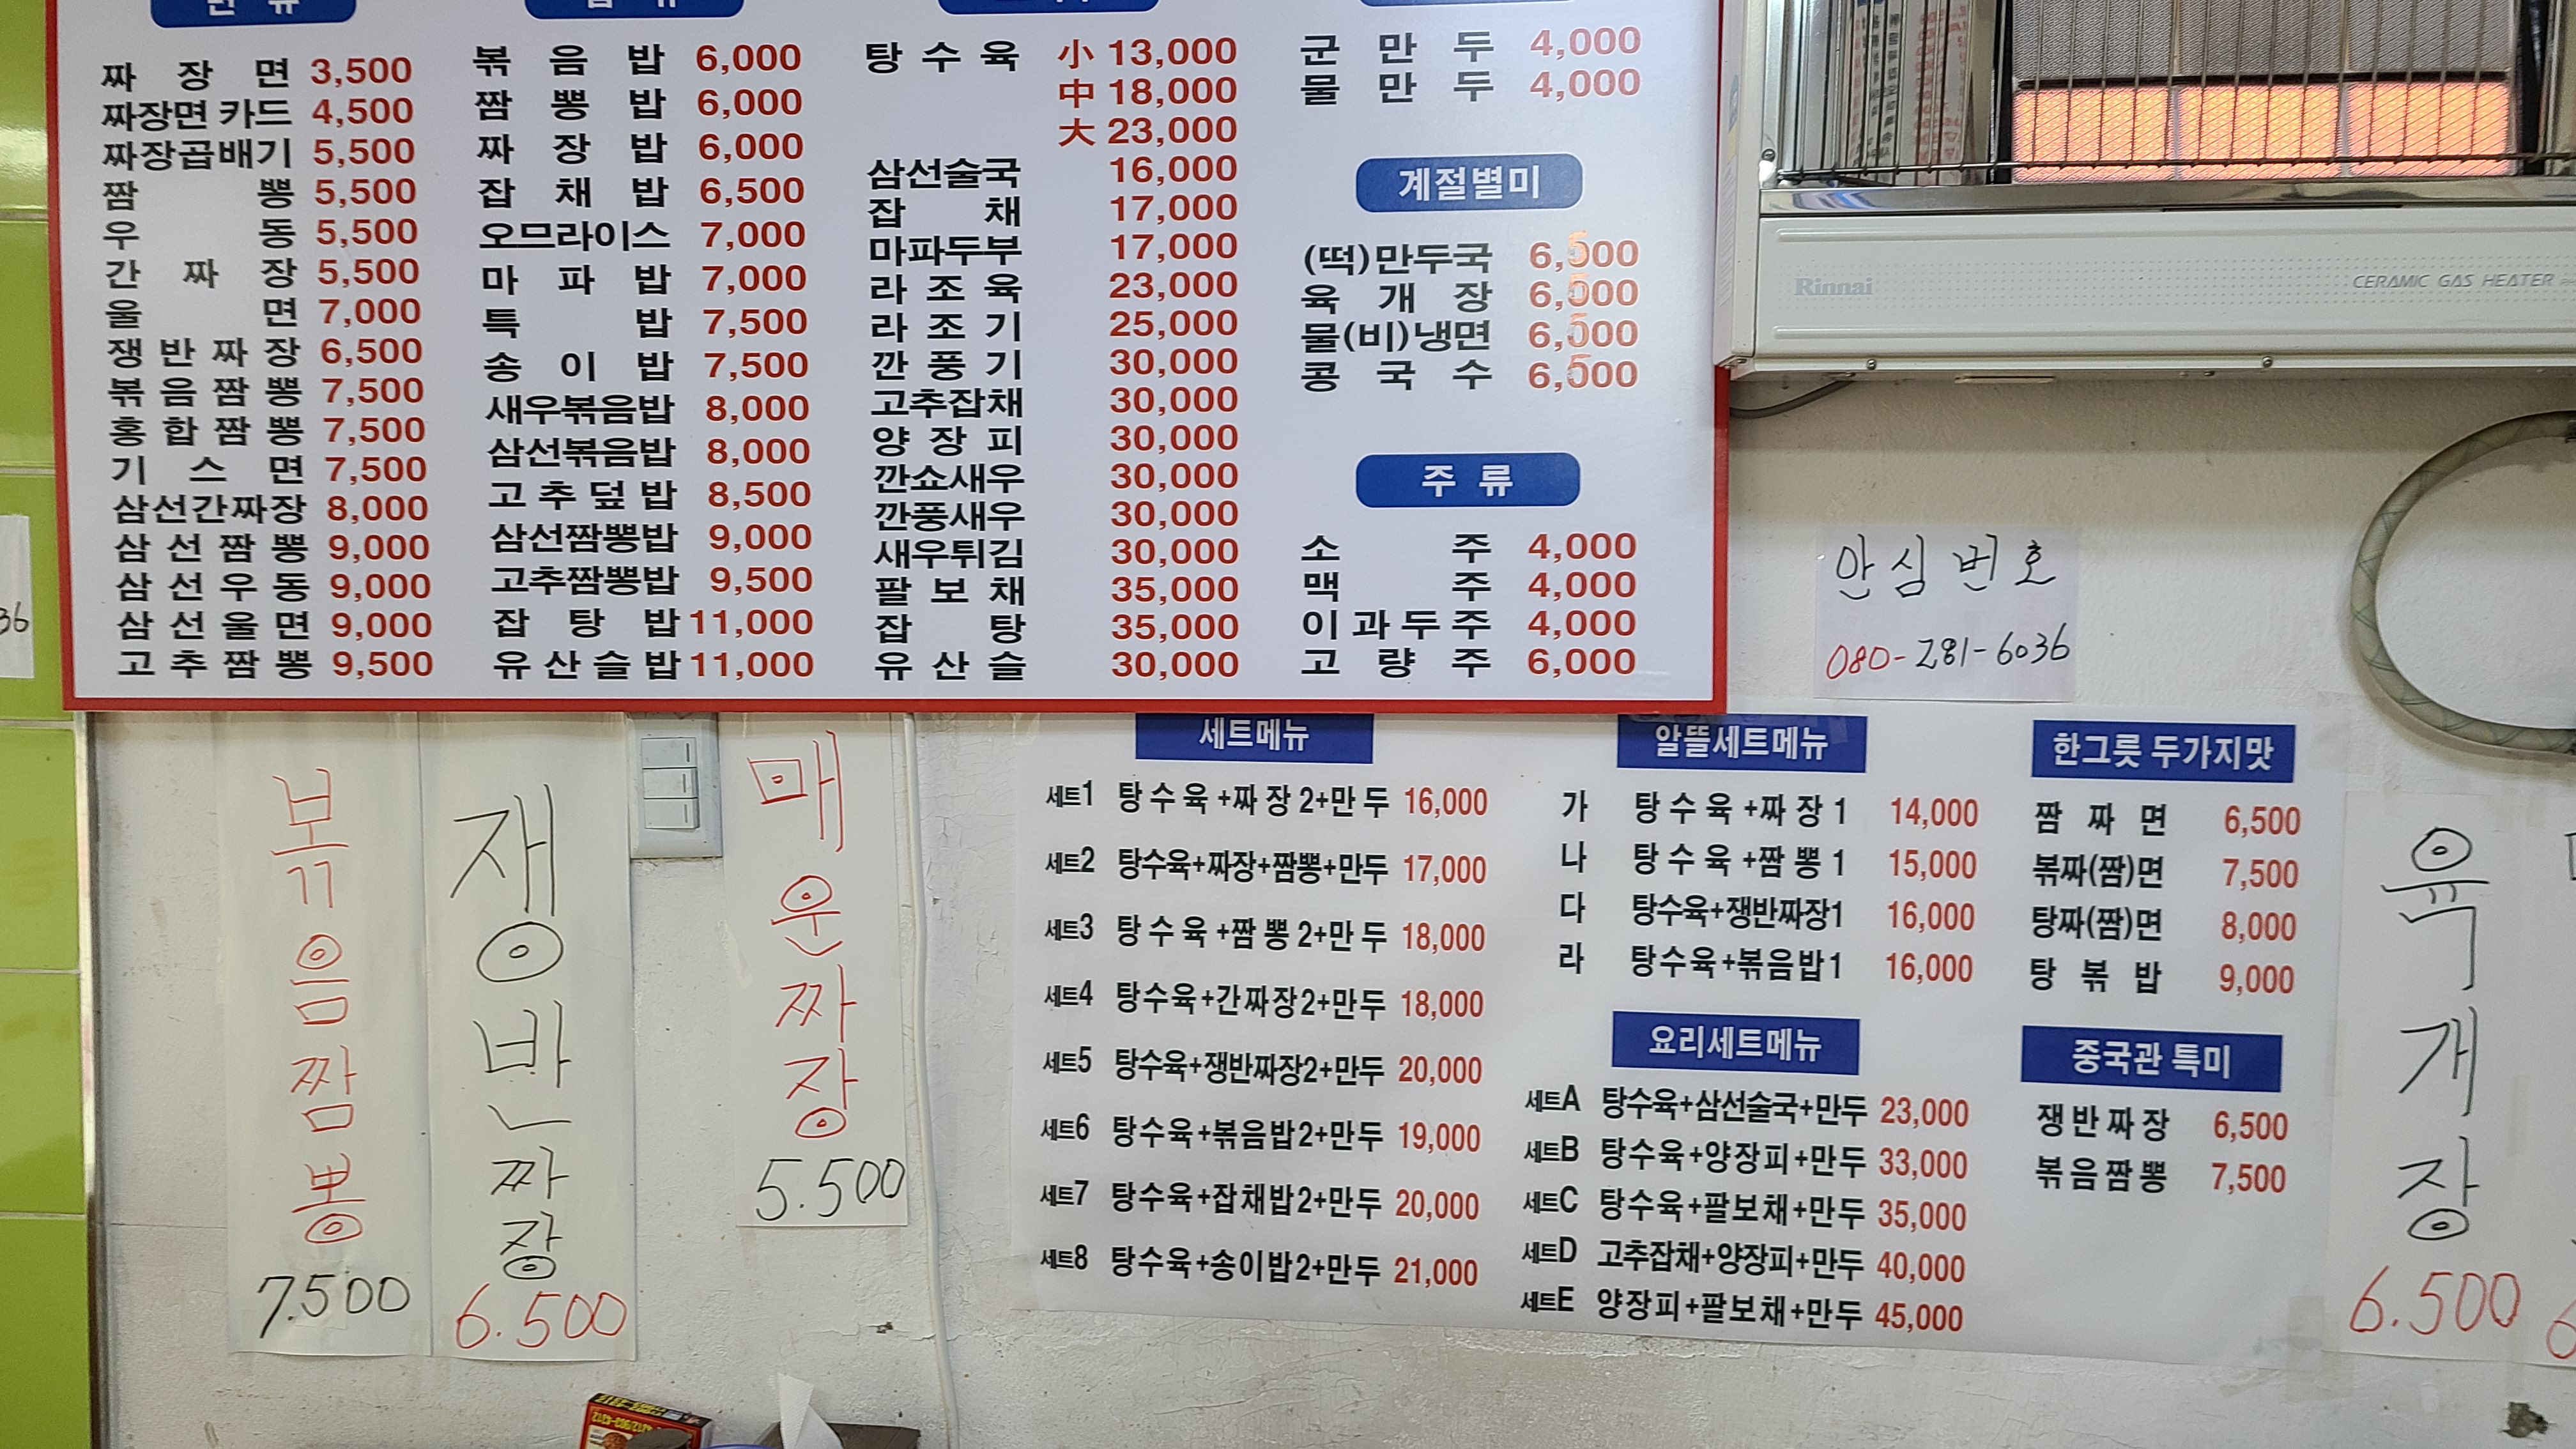 면 류
짜 장 면 3,500
짜장면 카드 4,500
짜장곱배기 5,500
짬 뽕 5,500
우 동 5,500
간 짜 장 5,500
울 면 7,000
쟁 반 짜 장 6,500
볶 음 짬 뽕 7,500
홍 합 짬 뽕 7,500
기 스 면 7,500
삼선간짜장 8,000
삼 선 짬 뽕 9,000
삼 선 우 동 9,000
삼 선 울 면 9,000
고 추 짬 뽕 9,500
볶 음 밥 6,000
짬 뽕 밥 6,000
짜 장 밥 6,000
잡 채 밥 6,500
오므라이스 7,000
마 파 밥 7,000
특 밥 7,500
송 이 밥 7,500
새우볶음밥 8,000
삼선볶음밥 8,000
고 추 덮 밥 8,500
삼선짬뽕밥 9,000
고추짬뽕밥 9,500
잡 탕 밥 11,000
유 산 슬 밥 11,000
탕 수 육 小 13,000
中 18,000
大 23,000
삼선술국 16,000
잡 채 17,000
마파두부 17,000
라 조 육 23,000
라 조 기 25,000
깐 풍 기 30,000
고추잡채 30,000
양 장 피 30,000
깐쇼새우 30,000
깐풍새우 30,000
새우튀김 30,000
팔 보 채 35,000
잡 탕 35,000
유 산 슬 30,000
군 만 두 4,000
물 만 두 4,000
계절별미
(떡)만두국 6,500
육 개 장 6,500
물(비)냉면 6,500
콩 국 수 6,500
주 류
소 주 4,000
맥 주 4,000
이 과 두 주 4,000
고 량 주 6,000
Rinnai
CERAMIC GAS HEATER
안심번호
080-281-6036
36
볶음짬뽕
7.500
쟁반짜장
6.500
매운짜장
5.500
세트메뉴
세트1 탕 수 육 +짜 장 2+만 두 16,000
세트2 탕수육+짜장+짬뽕+만두 17,000
세트3 탕 수 육 +짬 뽕 2+만 두 18,000
세트4 탕수육+간짜장2+만두 18,000
세트5 탕수육+쟁반짜장2+만두 20,000
세트6 탕수육+볶음밥2+만두 19,000
세트7 탕수육+잡채밥2+만두 20,000
세트8 탕수육+송이밥2+만두 21,000
알뜰세트메뉴
가 탕 수 육 +짜 장 1 14,000
나 탕 수 육 +짬 뽕 1 15,000
다 탕수육+쟁반짜장1 16,000
라 탕수육+볶음밥1 16,000
요리세트메뉴
세트A 탕수육+삼선술국+만두 23,000
세트B 탕수육+양장피+만두 33,000
세트C 탕수육+팔보채+만두 35,000
세트D 고추잡채+양장피+만두 40,000
세트E 양장피+팔보채+만두 45,000
한그릇 두가지맛
짬 짜 면 6,500
볶짜(짬)면 7,500
탕짜(짬)면 8,000
탕 볶 밥 9,000
중국관 특미
쟁반짜장 6,500
볶음짬뽕 7,500
육개장
6.500